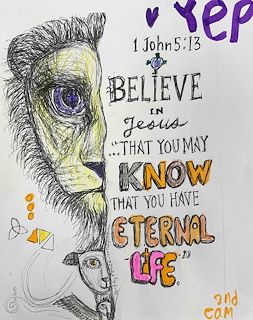 YEP
1 John 5:13
BELIEVE
IN
Jesus
"...THAT YOU MAY
KNOW
THAT YOU HAVE
ETERNAL
LIFE".
2nd
CAM